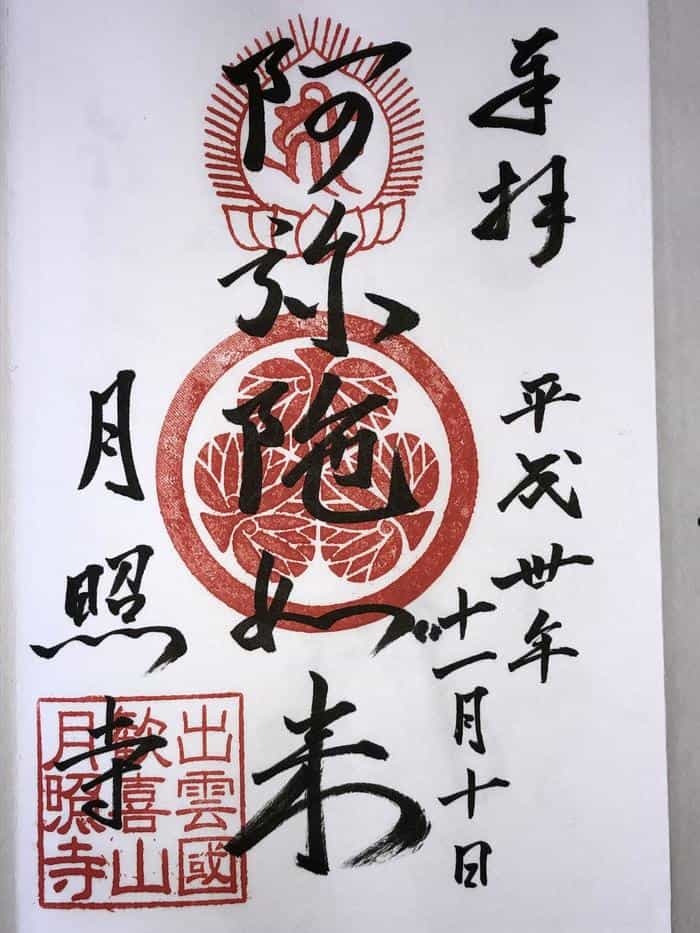 奉拝
平成卅年
十一月十日
阿弥陀如来
月照寺
出雲國
歓喜山
月照寺